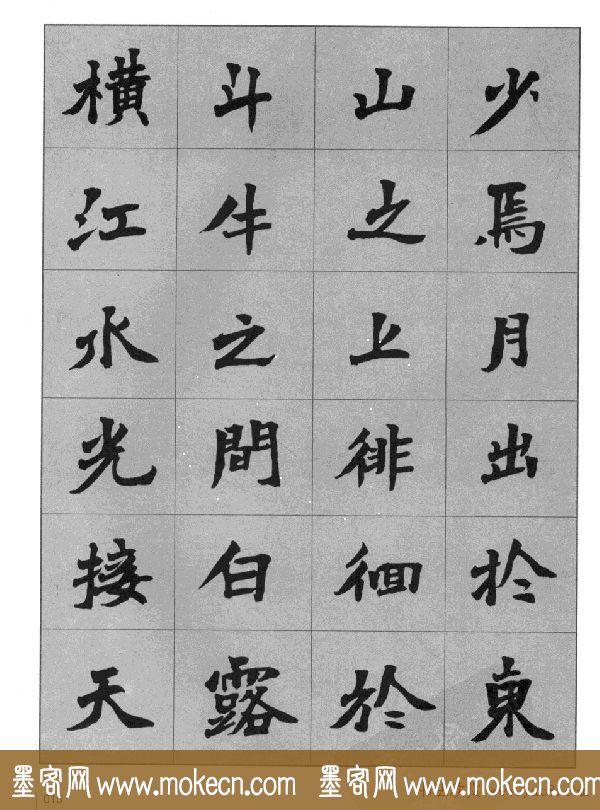 少焉月出於東
山之上徘徊於
斗牛之間白露
橫江水光接天
墨客网 www.mokecn.com 墨客网 www.mokecn.com